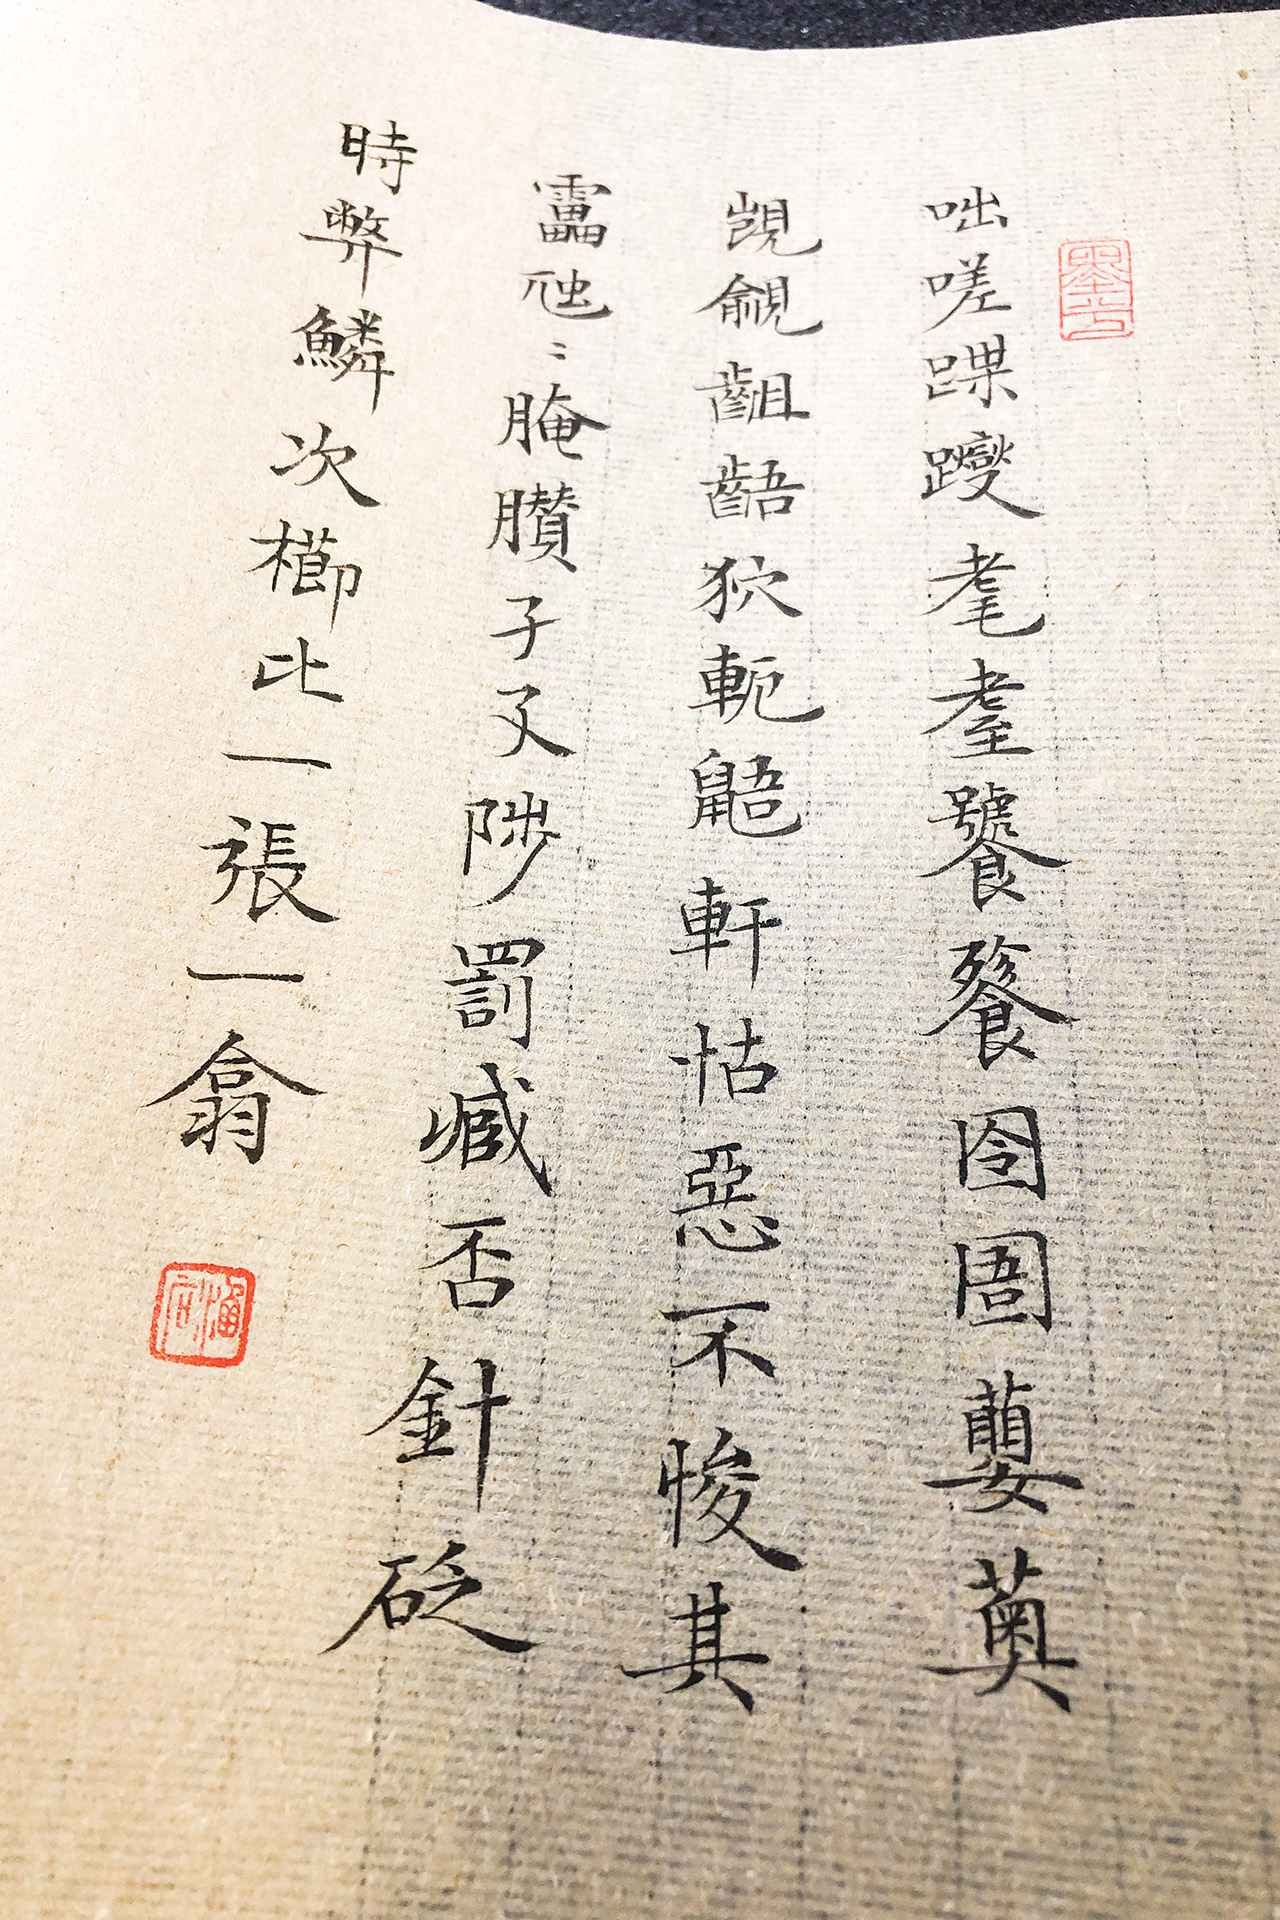 咄嗟踝躞耄耋饕餮囹圄蘡薁
覬覦齟齬狖軛鼯軒怙惡不悛其
靁虺〻腌臢孑孓陟罰臧否針砭
時弊鱗次櫛比一張一翕